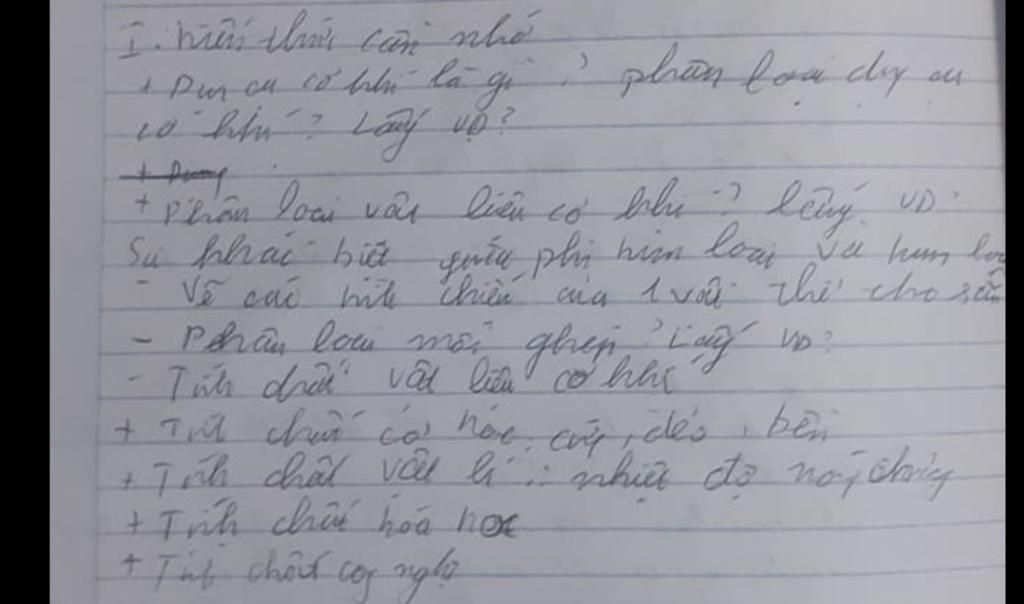 I. Kiến thức cần nhớ
+ Dụng cụ cơ khí là gì ? phân loại dụng cụ
cơ khí ? Lấy VD ?
+ Dụng
+ Phân loại vật liệu cơ khí ? lấy VD
Sự khác biệt giữa phi kim loại và kim loại
- Vẽ các hình chiếu của 1 vật thể cho sẵn
- Phân loại mối ghép ? Lấy VD ?
- Tính chất vật liệu cơ khí
+ Tính chất cơ học : cứng, dẻo, bền
+ Tính chất vật lí : nhiệt độ nóng chảy
+ Tính chất hóa học
+ Tính chất công nghệ